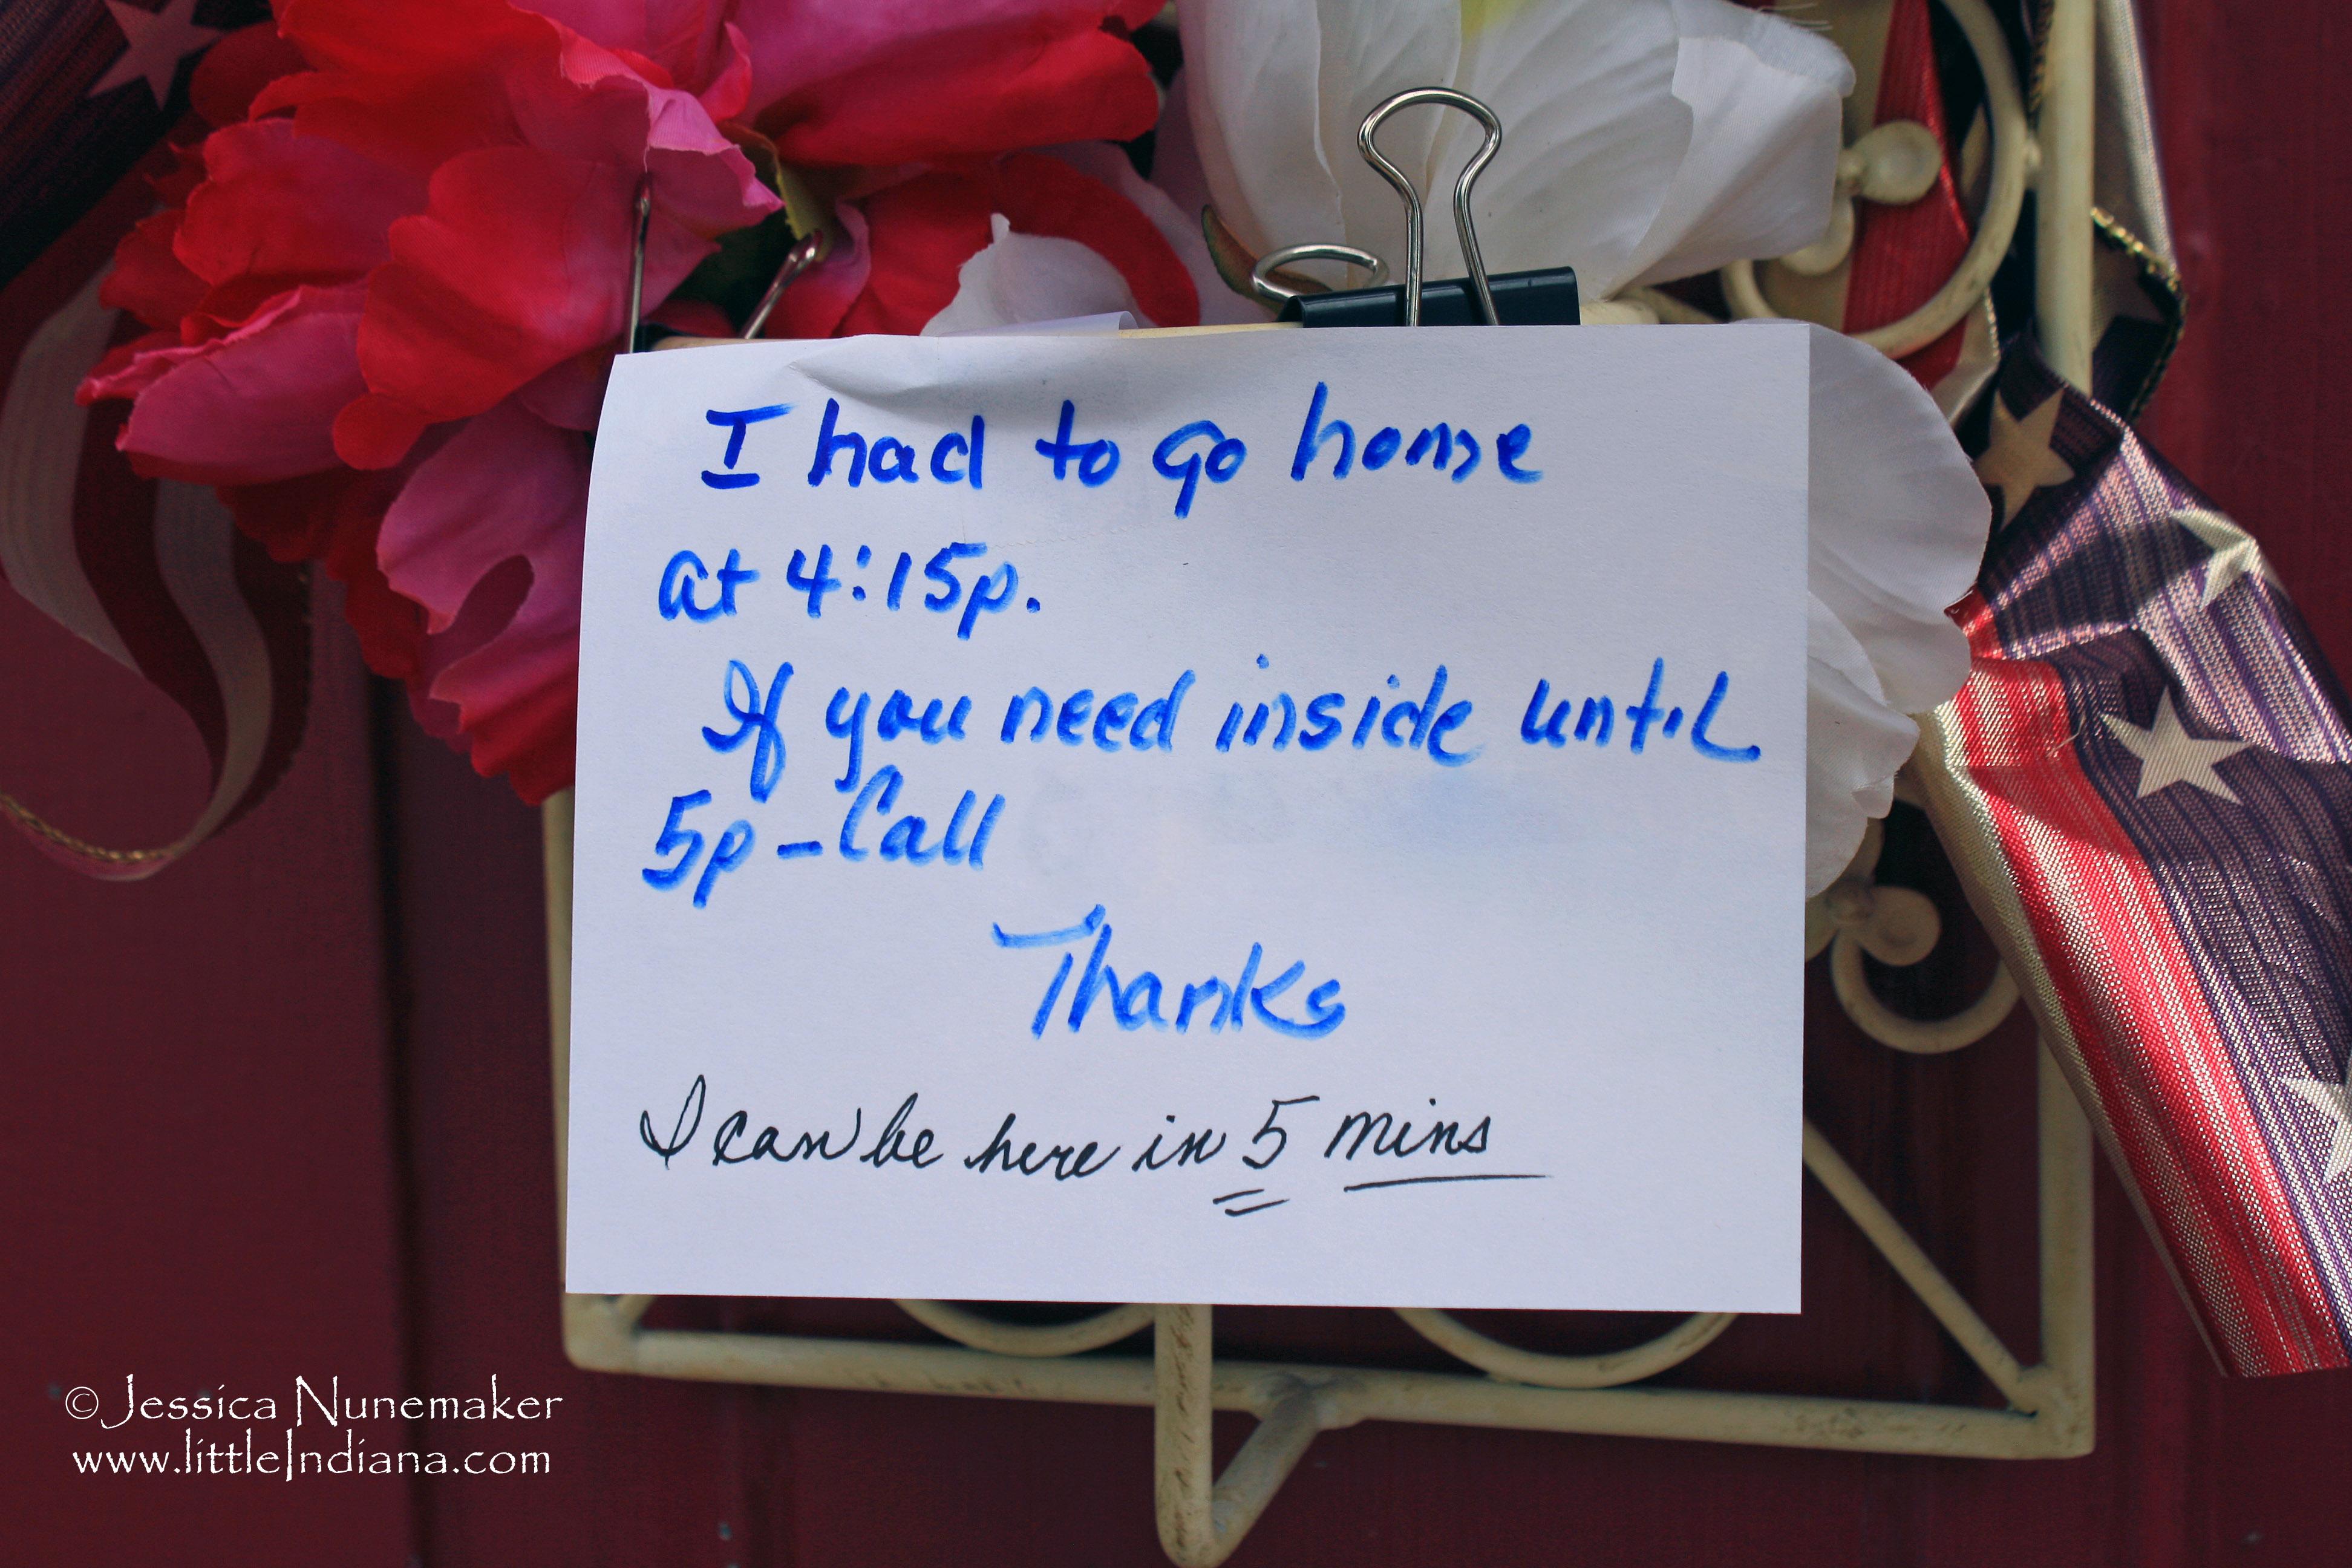 I had to go home
at 4:15p.
If you need inside until
5p - Call
Thanks
I can be here in 5 mins
© Jessica Nunemaker
www.littleIndiana.com